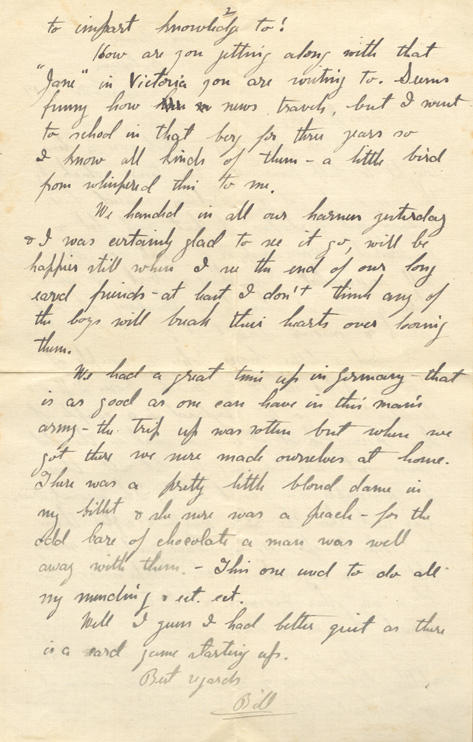 2
to impart knowledge to!
How are you getting along with that
"Jane" in Victoria you are writing to. Seems
funny how news travels, but I went
to school in that berg for three years so
I know all kinds of them - a little bird
from whispered this to me.
We handed in all our harness yesterday
& I was certainly glad to see it go, will be
happier still when I see the end of our long
eared friends - at least I don't think any of
the boys will break their hearts over loosing
them.
We had a great time up in Germany - that
is as good as one can have in this man's
army - the trip up was rotten but when we
got there we sure made ourselves at home.
There was a pretty little blond dame in
my billet & she sure was a peach - for the
odd bare of chocolate a man was well
away with them. - This one used to do all
my mending & ect. ect.
Well I guess I had better quit as there
is a card game starting up.
Best regards
Bill